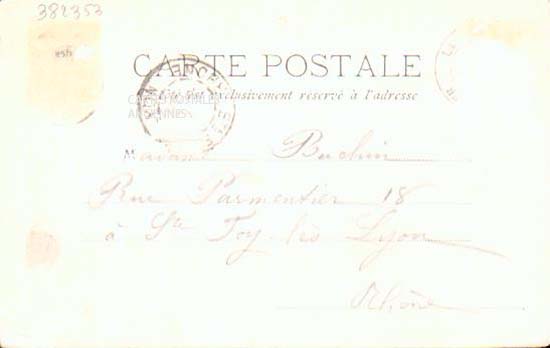 382353
CARTE POSTALE
Ce côté est exclusivement réservé à l'adresse
CARTES POSTALES
ANCIENNES
Madame Buchin
Rue Parmentier 18
à Ste Foy-lès Lyon
Rhône